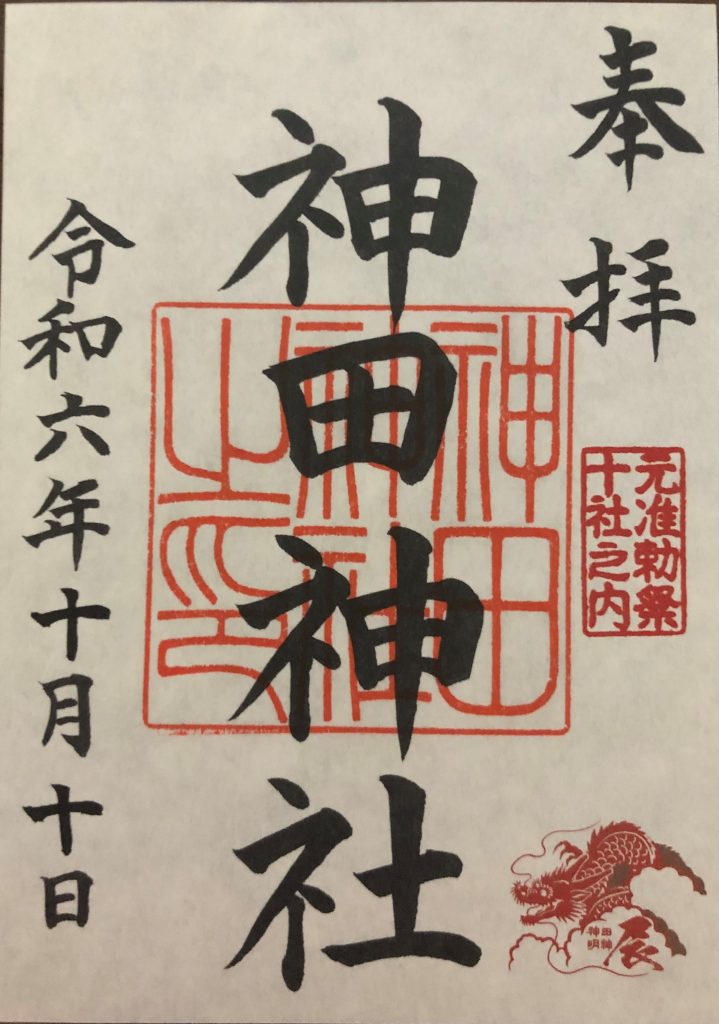 奉拝
元准勅祭
十社之内
神田神社
神田
神社
之印
令和六年十月十日
辰
田神
神明